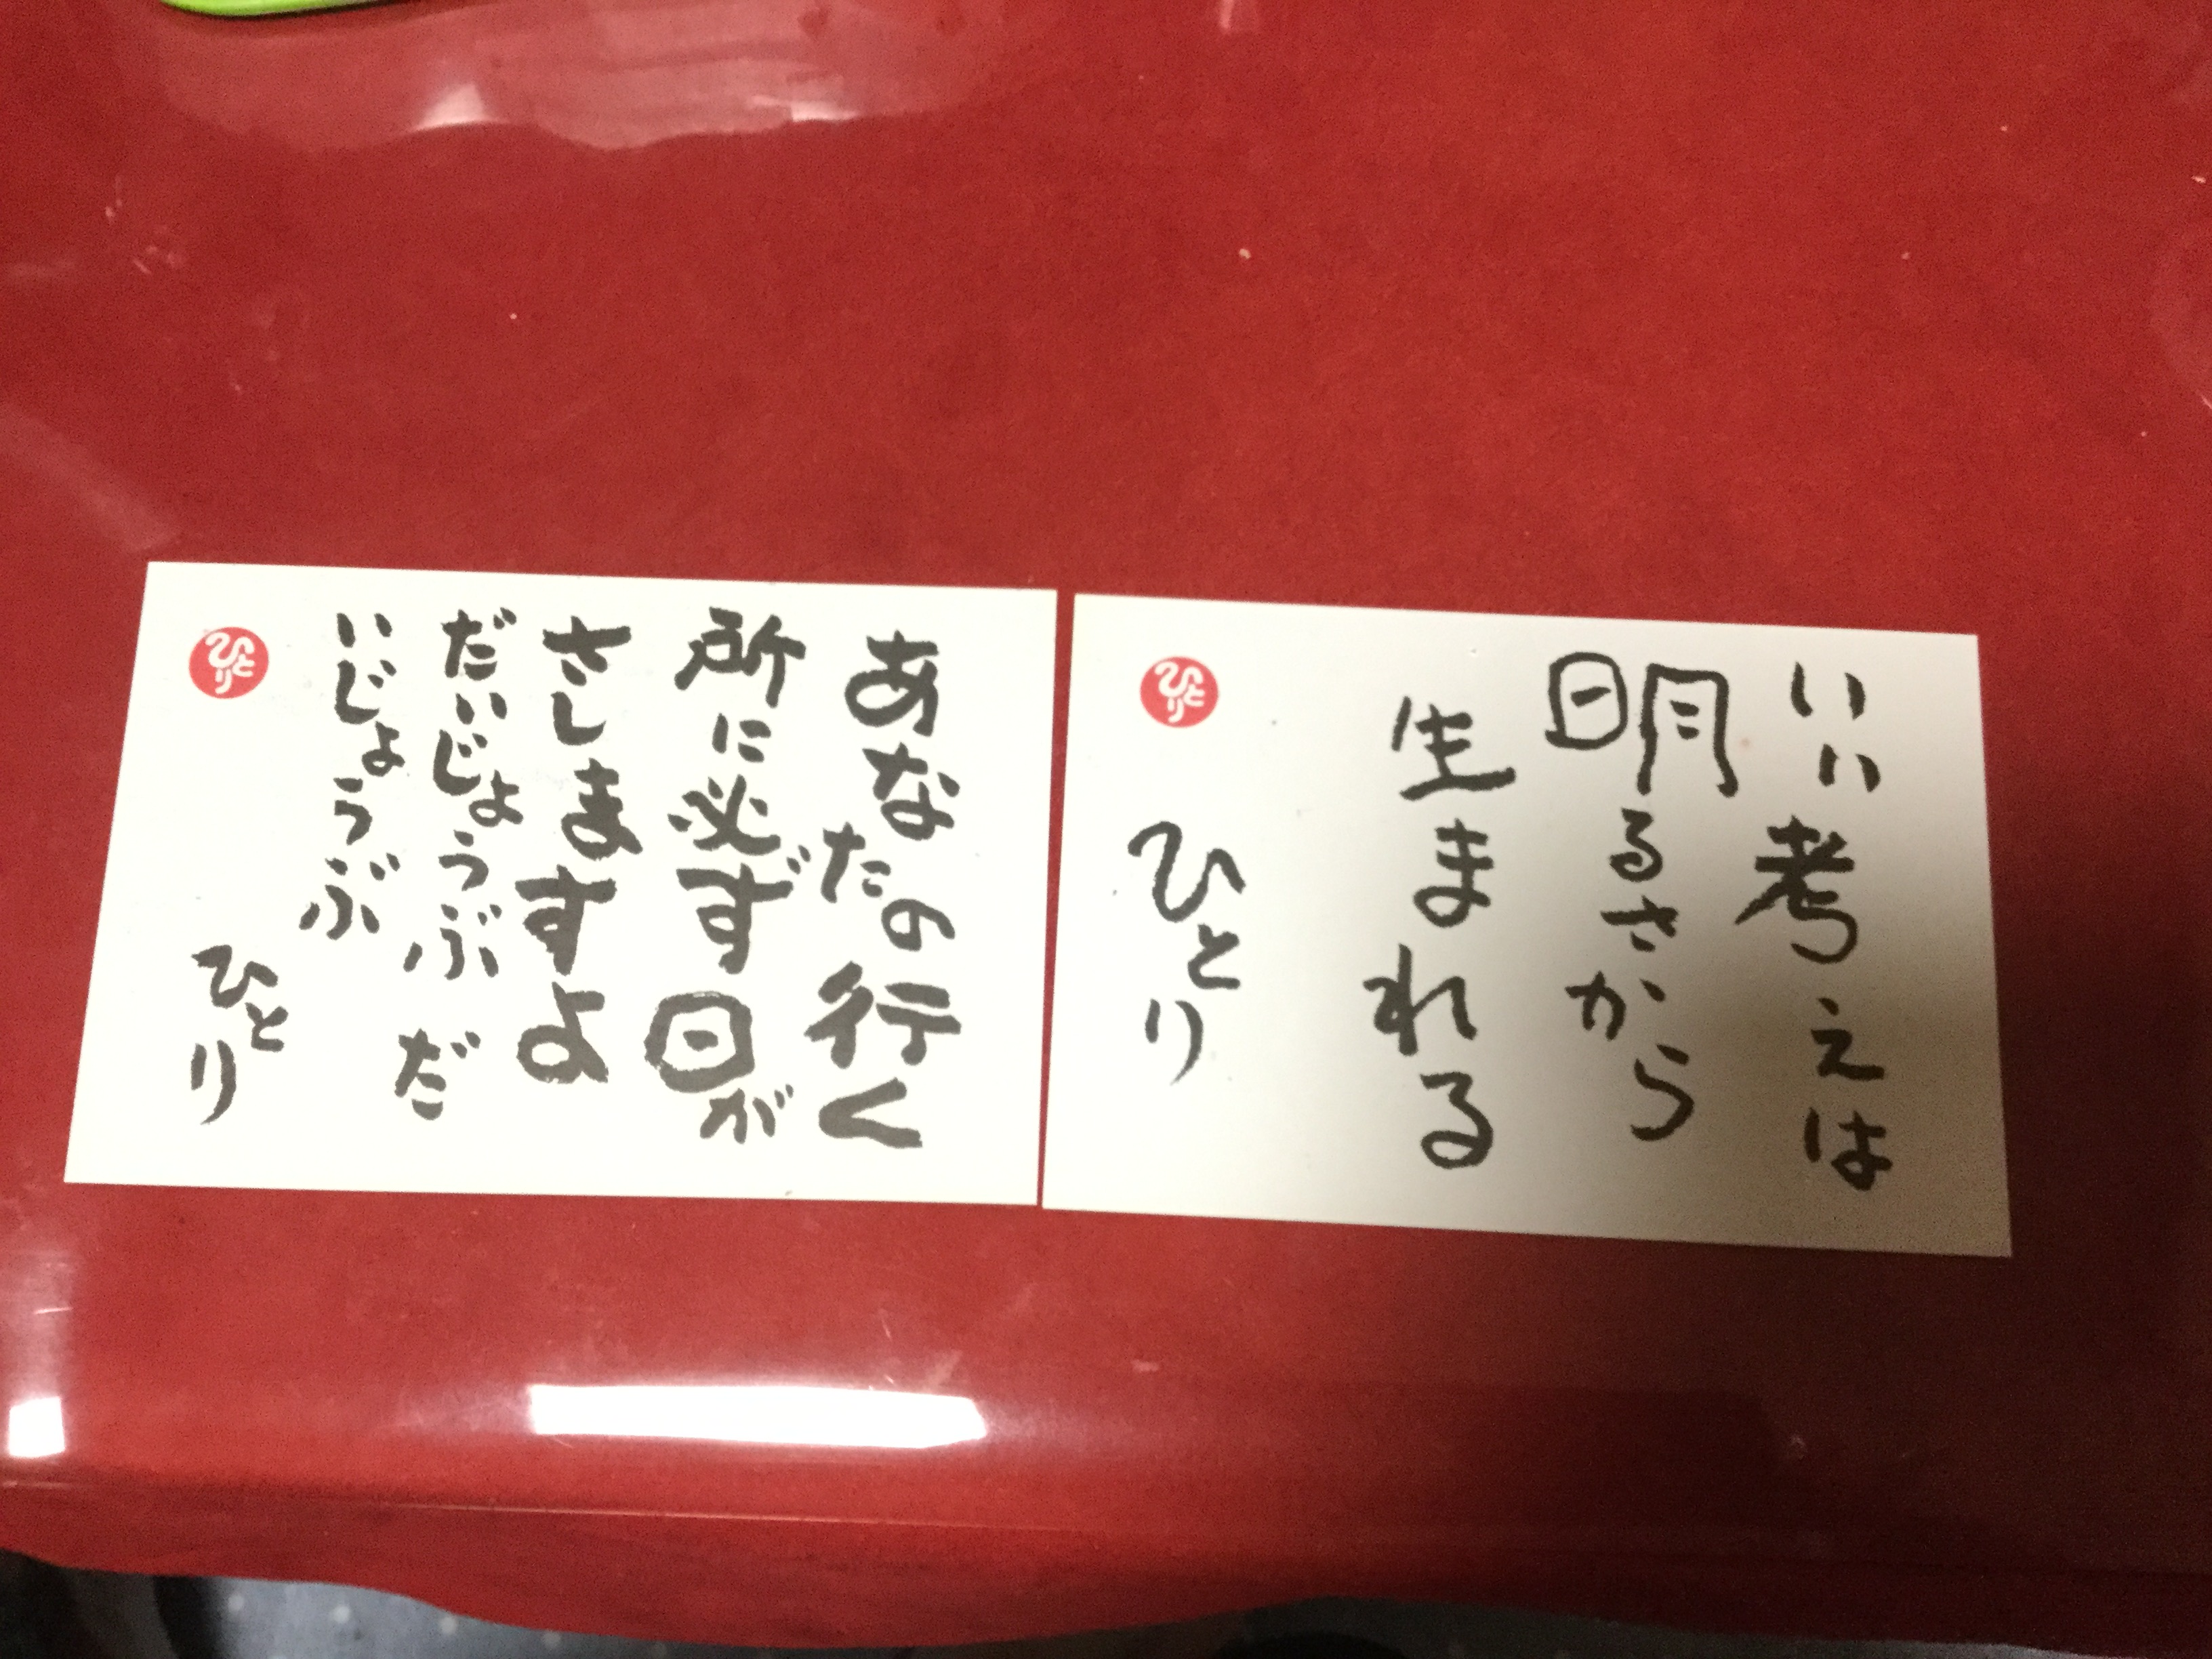 いい考えは
明るさから
生まれる
ひとり
ひとり
あなたの行く
所に必ず日が
さしますよ
だいじょうぶ だ
いじょうぶ
ひとり
ひとり